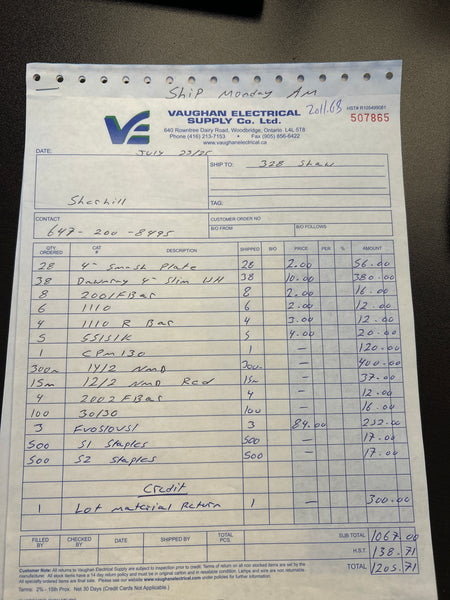 Ship Monday AM
2011.68
VE
VAUGHAN ELECTRICAL
SUPPLY Co. Ltd.
640 Rowntree Dairy Road, Woodbridge, Ontario L4L 5T8
Phone (416) 213-7153 • Fax (905) 856-6422
www.vaughanelectrical.ca
HST# R105499081
507865
DATE: July 23/25
SHIP TO: 328 Shaw
Sherhill
TAG:
CONTACT
647-200-8495
CUSTOMER ORDER NO
B/O FROM B/O FOLLOWS
QTY. ORDERED CAT # DESCRIPTION SHIPPED B/O PRICE PER % AMOUNT
28 4" Smosh Plate 28 2.00 56.00
38 4" Slim WH 38 10.00 380.00
8 2001 F Bar 8 2.00 16.00
6 1110 6 2.00 12.00
4 1110 R Bar 4 3.00 12.00
5 5 4.00 20.00
1 CPM130 1 — 120.00
300m 14/2 NMD 300m — 400.00
15m 12/2 NMD Red 15m — 37.00
4 2002 F Bar 4 — 12.00
100 30/30 100 — 16.00
3 FV0510VS1 3 84.00 252.00
500 S1 Staples 500 — 17.00
500 S2 Staples 500 — 17.00
Credit
1 Lot Material Return 1 — 300.00
FILLED BY CHECKED BY DATE SHIPPED BY TOTAL PCS.
SUB TOTAL 1067.00
H.S.T. 138.71
TOTAL 1205.71
Customer Note: All returns to Vaughan Electrical Supply are subject to inspection prior to credit. Terms of return on all non stocked items are set by the
manufacturer. All stock items have a 14 day return policy and must be in original carton and in resaleable condition. Lamps and wire are non returnable.
All specialty orders are final sales. Please see our website www.vaughanelectrical.com under policies for further information.
Terms: 2% - 15th Prox. Net 30 Days (Credit Cards Not Applicable.)